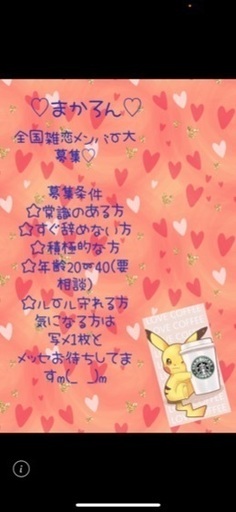 ♡まかろん♡
全国雑恋メンバʊ大
募集♡
募集条件
☆常識のある方
☆すぐ辞めない方
☆積極的な方
☆年齢20〜40(要
相談)
☆ルール守れる方
気になる方は
写メ1枚と
メッセお待ちしてま
すm(_ _)m
I LOVE COFFEE